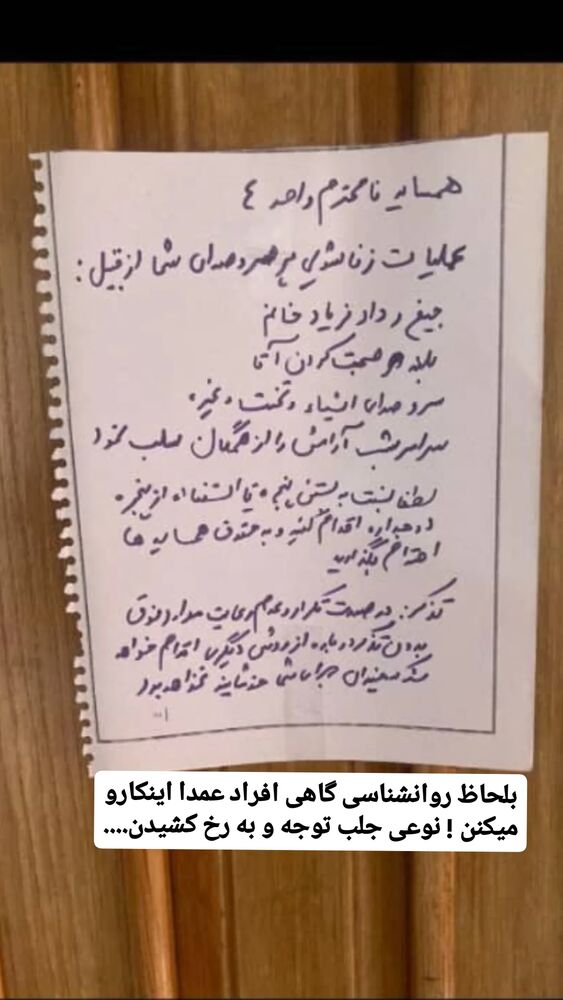 همسایه نامحترم واحد ٤
عملیات زناشویی پر سر و صدای شما از قبیل:
جیغ و داد و فریاد خانم
بلند صحبت کردن آقا
سر و صدای اشیاء و تخت و غیره
سراسر شب آرامش را از همگان سلب نمود
لطفا نسبت به بستن پنجره یا استفاده از پنجره
دوجداره اقدام کنید و به حقوق همسایه ها
احترام بگذارید
تذکر: در صورت تکرار و عدم رعایت موارد فوق
بدون تذکر دوباره از روش دیگری اقدام خواهد
شد که برای شما خوشایند نخواهد بود
بلحاظ روانشناسی گاهی افراد عمدا اینکارو
میکنن ! نوعی جلب توجه و به رخ کشیدن....